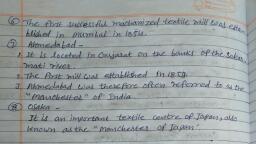 ⑥ The first successful mechanized textile mill was esta-
blished in Mumbai in 1854.
⑦ Ahmedabad -
1. It is located in Gujarat on the banks of the Sabar-
mati river.
2. The first mill was established in 1859.
3. Ahmedabad was therefore often referred to as the
"Manchester" of India.
⑧ Osaka -
It is an important textile centre of Japan, also
known as the "Manchester of Japan".